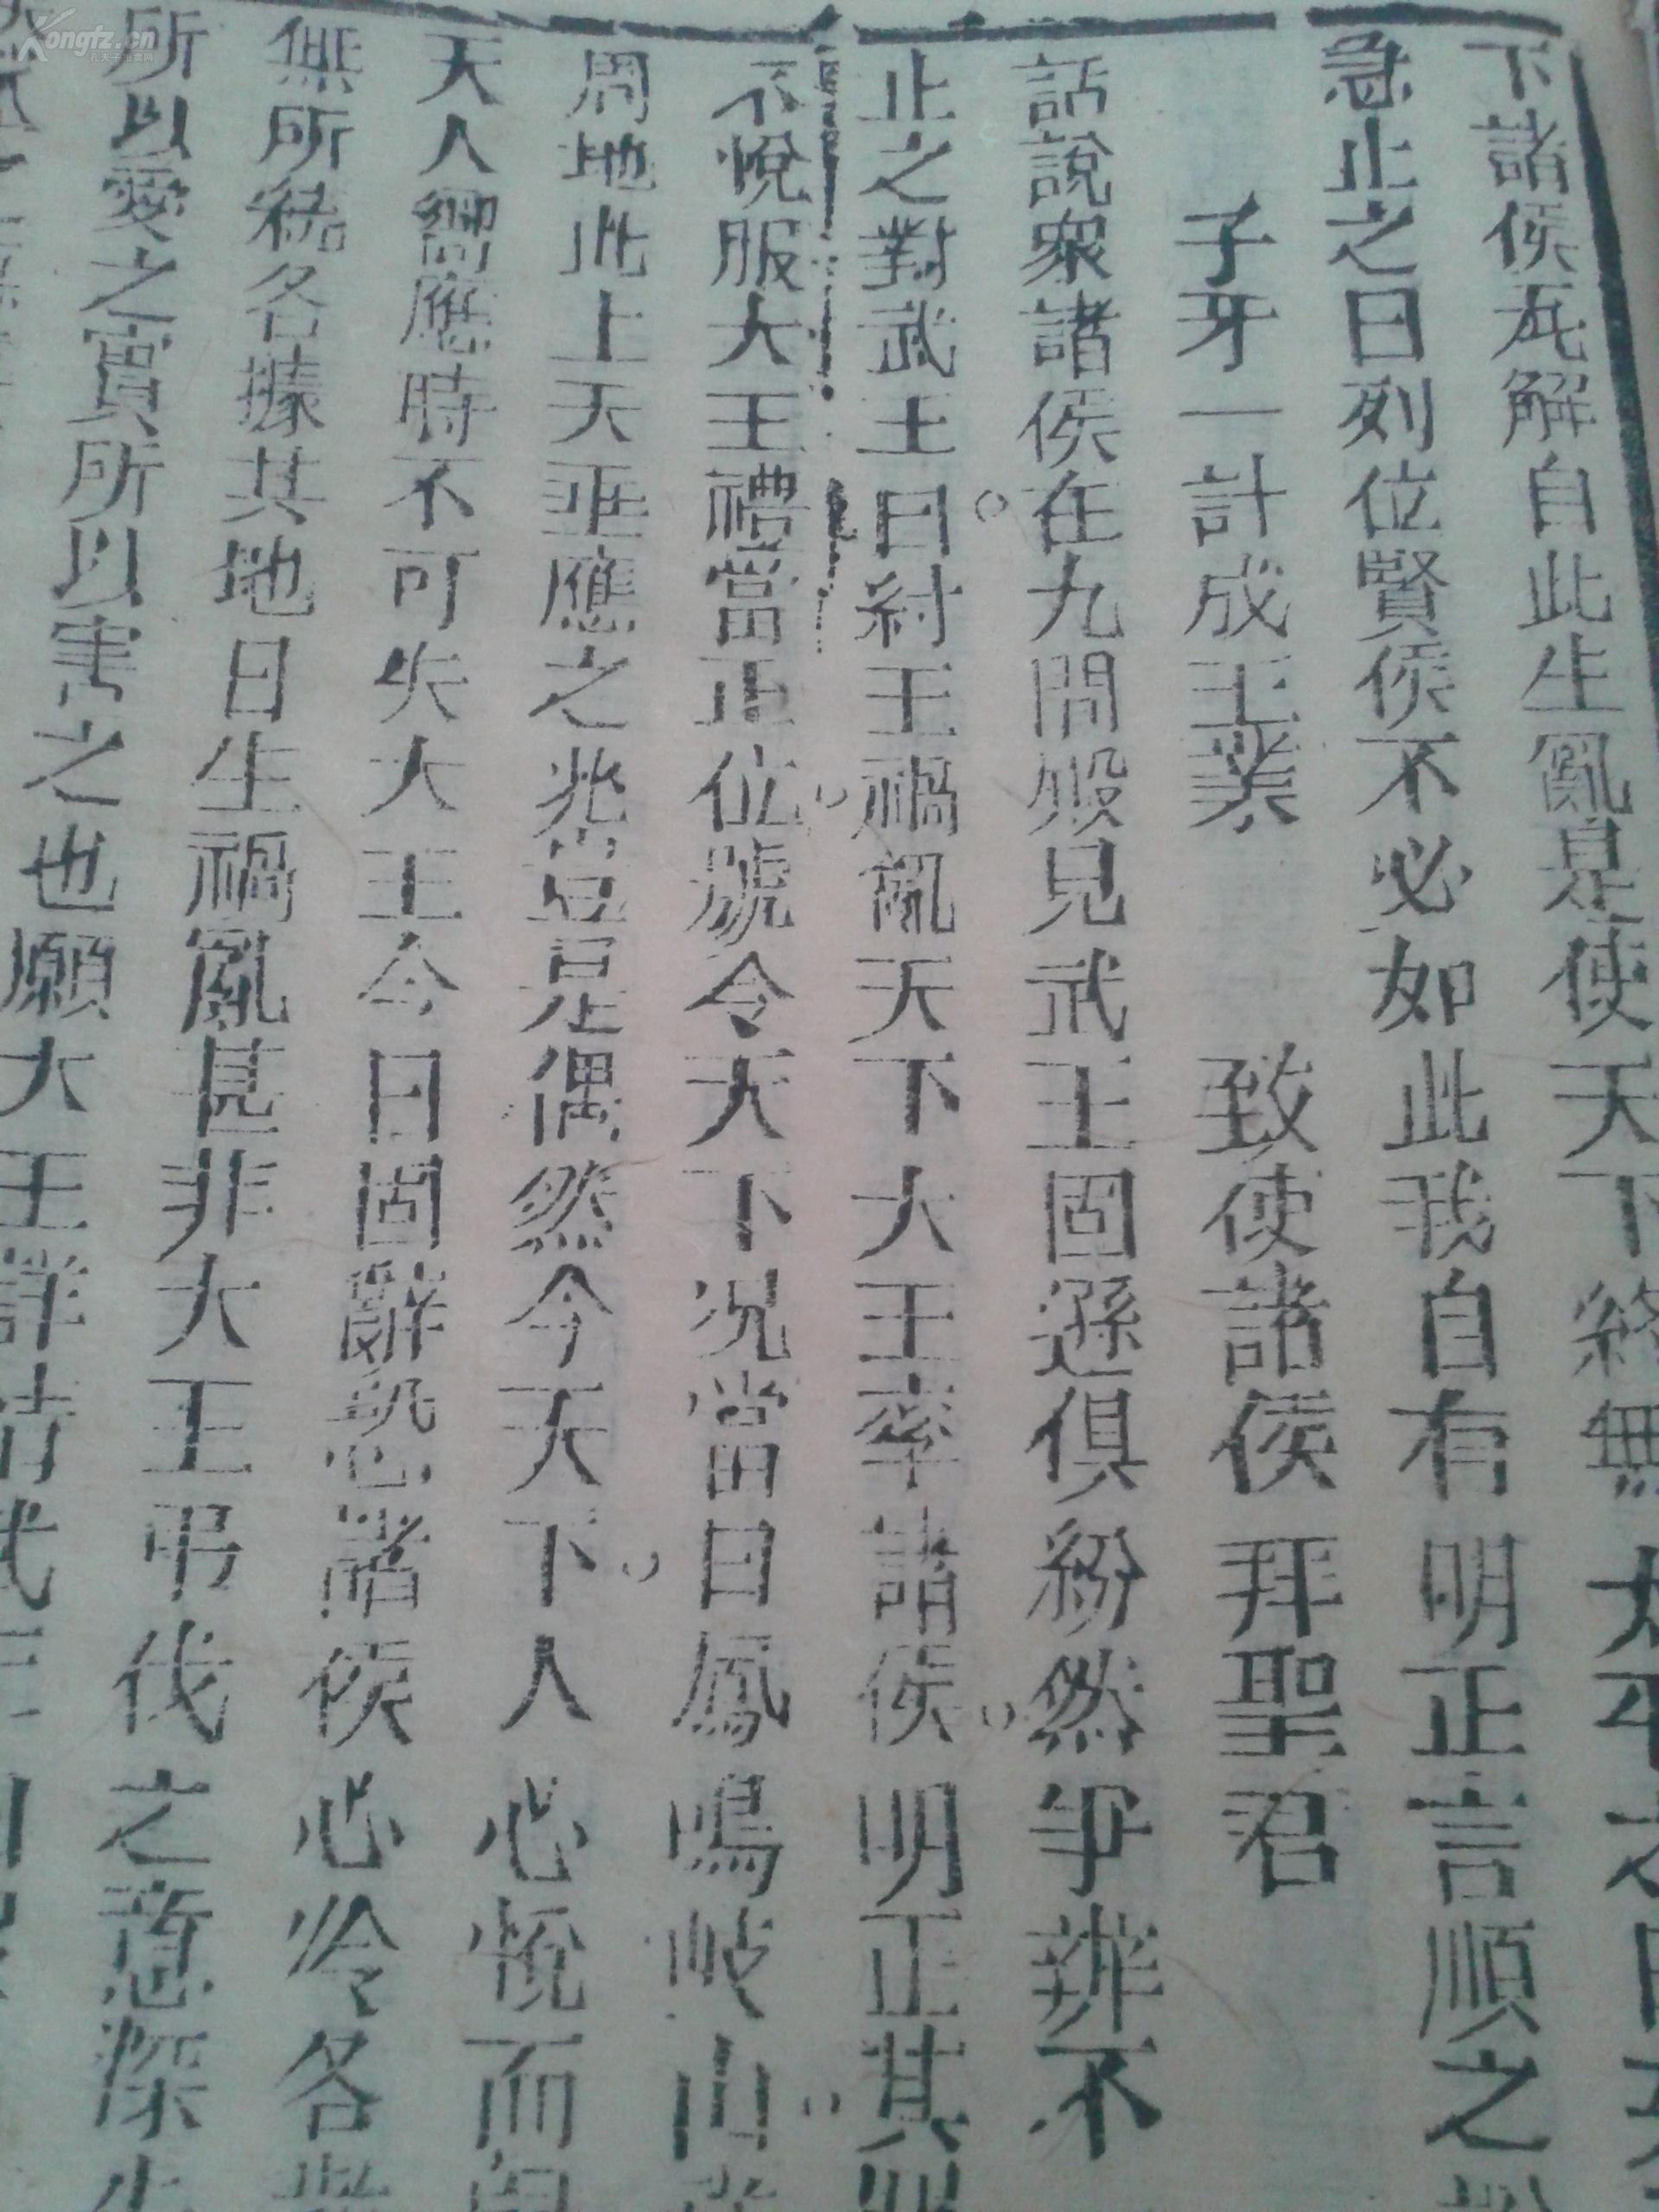 下諸侯瓦解自此生亂是使天下終無太平之日
急止之曰列位賢侯不必如此我自有明正言順之
子牙一計成王業 致使諸侯拜聖君
話說衆諸侯在九間殿見武王固遜俱紛然爭辨不
止之對武王曰紂王禍亂天下大王率諸侯明正其
不悅服大王禮當正位號令天下况當日鳳鳴岐山
周地此上天垂應之兆豈是偶然今天下人心悅而
天人嚮應時不可失大王今日固辭恐諸侯心冷各
無所統各據其地日生禍亂甚非大王弔伐之意深
所以愛之實所以害之也願大王詳
Kongfz.cn